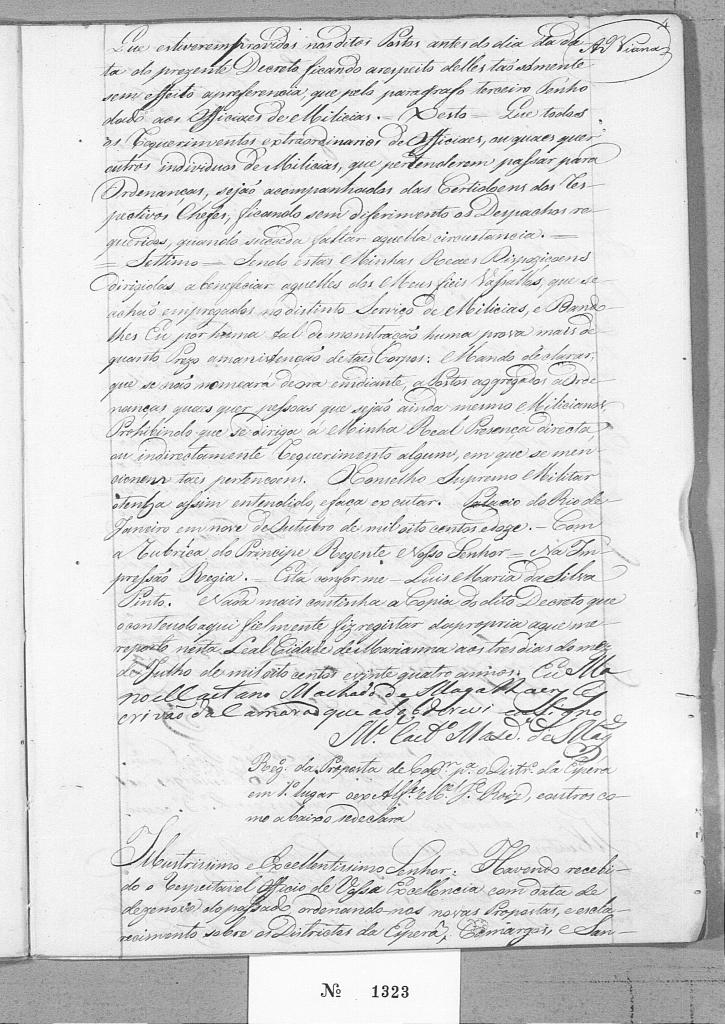 4
A Viana
Que estiverem providos nos ditos Postos antes do dia da da-
ta do prezente Decreto, ficando a respeito delles taõ sómente
sem effeito a preferencia, que pelo paragrafo terceiro Tenho
dado aos Officiaes de Milicias. = Sesto = Que todos
os Requerimentos extraordinarios de Officiaes, ou quaes quer
outros individuos de Milicias, que pertenderem passar para
Ordenanças, sejaõ acompanhados das Certidoens dos Res-
pectivos Chefes, ficando sem diferimento os Despachos re-
queridos, quando suceda faltar aquella circunstancia. =
= Settimo = Sendo estas Minhas Reaes Dispoziçoens
dirigidas a beneficiar aquelles dos Meus fieis Vassallos, que se
achaõ empregados no distinto Serviço de Milicias, e Dando
lhes Eu por huma tal demonstraçaõ huma prova mais de
quanto Prezo a manistençaõ de taes Corpos: Mando declarar,
que se naõ nomeará de ora em diante, a Postos aggregados a Orde-
nanças quaes quer pessoas que sejaõ ainda mesmo Milicianos,
Prohibindo que se diriga á Minha Real Presença directa,
ou indirectamente Requerimento algum, em que se men-
cionem taes pertençoens. Conselho Supremo Militar
o tenha assim entendido, e faça excutar. Palacio do Rio de
Janeiro em nove de Outubro de mil oito centos e doze. = Com
a Rubrica do Principe Regente Nosso Senhor = Na Im-
pressaõ Regia. = Está conforme = Luis Maria da Silva
Pinto. Nada mais continha a Copia do dito Decreto que
o contendo aqui fielmente fiz registar da propria a que me
reporto nesta Leal Cidade de Marianna aos tres dias do mez
de Julho de mil oito centos e vinte quatro annos. Eu Ma-
noel Caetano Machado de Magalhaens Es
crivaõ da Camara que a sobscrevi e assigno
M.el Caet.o Maxd.o de Mag
Reg. da Proposta de Cap.m p.a o Distr. da Espera
em 1.o lugar o ex Alf.es M.el J.e Roiz, e outros co-
mo abaixo se declara
Illustrissimo e Excellentissimo Senhor: Havendo recebi-
do o respeitavel Officio de Vossa Excellencia com data de
dezenove do passado ordenando-nos novas Propostas, e escla-
recimento sobre os Districtos da Espera, Camargos, e San-
No 1323